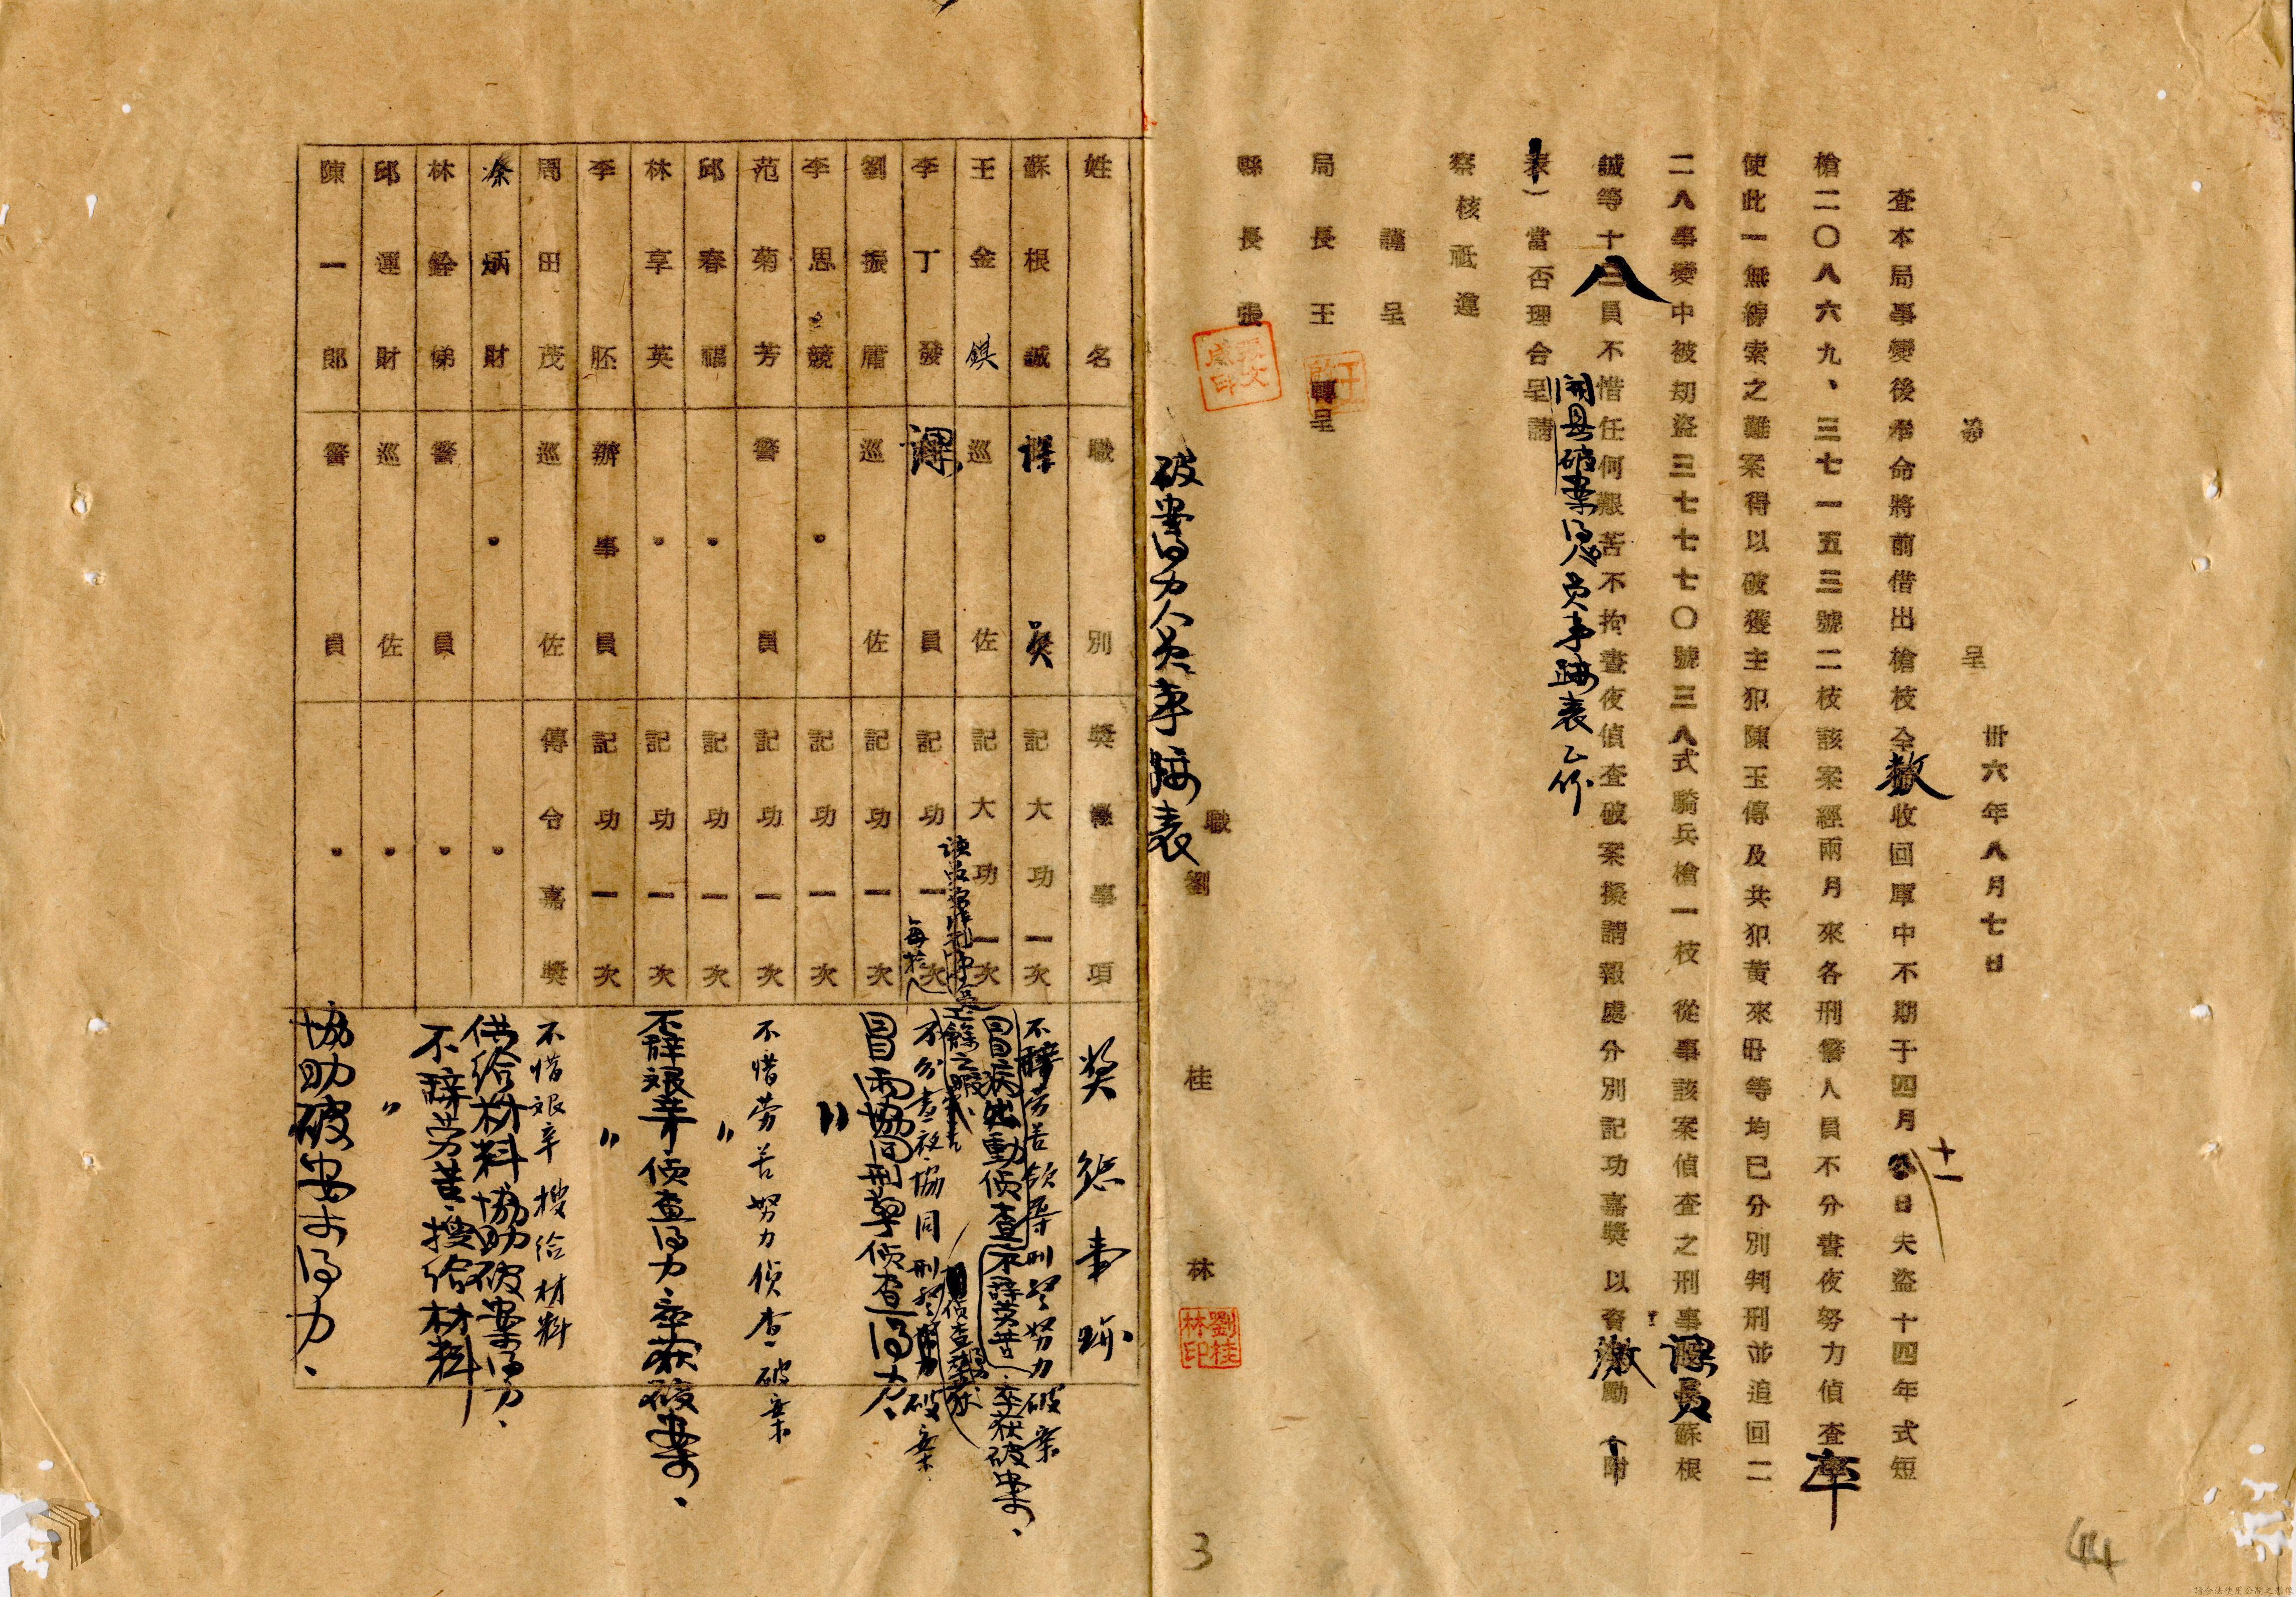 簽呈
卅六年八月七日
查本局事變後奉命將前借出槍枝全數收回庫中不期于四月十一日失盜十四年式短
槍二〇八六九、三七一五三號二枝該案經兩月來各刑警人員不分晝夜努力偵查卒
使此一無線索之難案得以破獲主犯陳玉傳及共犯黃來㽕等均已分別判刑並追回二
二八事變中被刼盜三七七七〇號三八式騎兵槍一枝從事該案偵查之刑事課員蘇根
誠等十八員不惜任何艱苦不拘晝夜偵查破案擬請報處分別記功嘉獎以資激勵
開具破案得力員事蹟表乙份
當否理合呈請
察核祗遵
謹呈
局長王 轉呈
縣長張
職 劉桂林
劉桂林印
破案得力人員事蹟表
姓名 職別 獎懲事項 獎懲事跡
蘇根誠 課員 記大功一次 不辭劳苦領導刑警努力破案
王金鍈 巡佐 記大功一次 冒病出動偵查不辞劳苦、卒获破案、
李丁發 課員 記功一次 不分晝夜協同刑警努力破案
劉振庸 巡佐 記功一次 冒雨協同刑警偵查得力、
李思競 〃 記功一次 〃
范菊芳 警員 記功一次 不惜劳苦努力偵查破案
邱春福 〃 記功一次 〃
林享英 〃 記功一次 不辞艰辛偵查得力、卒获破案、
李胚 辦事員 記功一次 〃
周田茂 巡佐 傳令嘉獎 不惜艰辛搜给材料
涂炳財 〃 〃 供给材料協助破案得力、
林銓俤 警員 〃 不辞劳苦、搜给材料
邱運財 巡佐 〃 〃
陳一郎 警員 〃 協助破案得力、
3
44